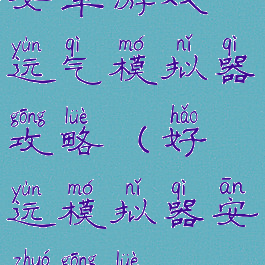 安卓游戏
yùn qì mó nǐ qì
运气模拟器
gōng lüè hǎo
攻略（好
yùn mó nǐ qì ān
运模拟器安
zhuó gōng lüè